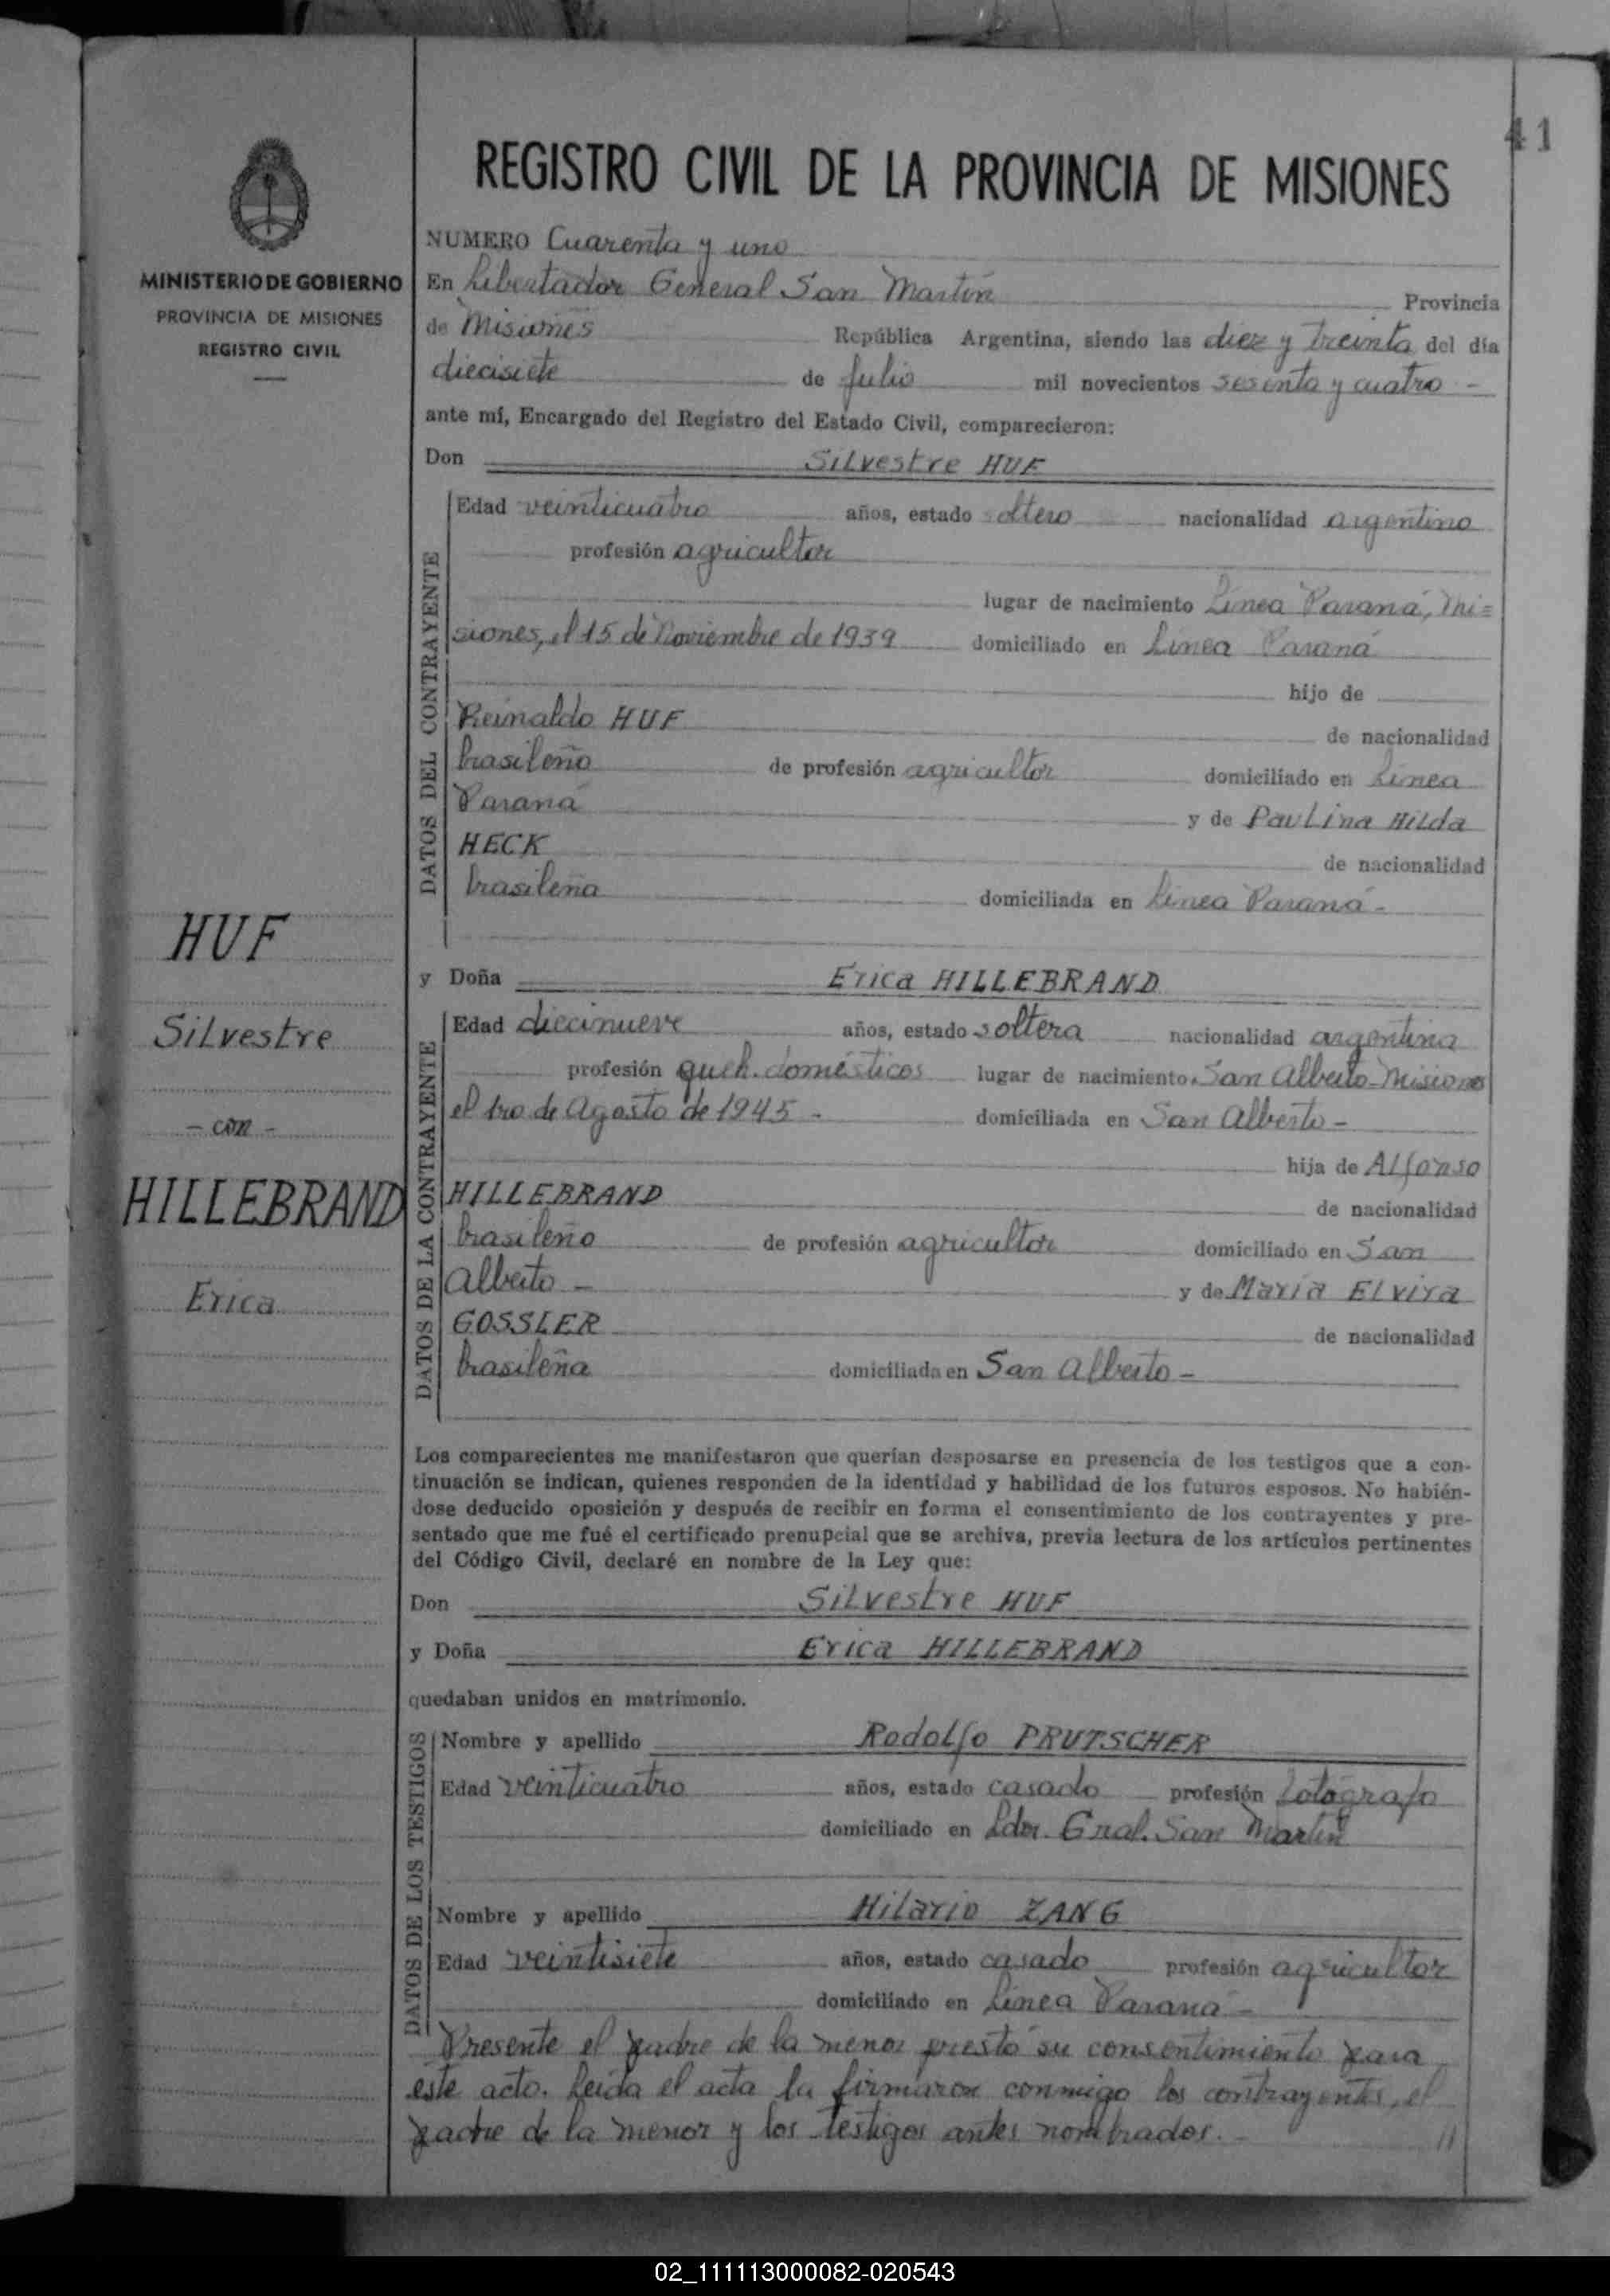 41
REGISTRO CIVIL DE LA PROVINCIA DE MISIONES
MINISTERIO DE GOBIERNO
PROVINCIA DE MISIONES
REGISTRO CIVIL
HUF
Silvestre
- con -
HILLEBRAND
Erica
NUMERO Cuarenta y uno
En Libertador General San Martín Provincia
de Misiones República Argentina, siendo las diez y treinta del día
diecisiete de Julio mil novecientos sesenta y cuatro -
ante mí, Encargado del Registro del Estado Civil, comparecieron:
Don Silvestre HUF
DATOS DEL CONTRAYENTE
Edad veinticuatro años, estado soltero nacionalidad argentino
profesión agricultor
lugar de nacimiento Línea Paraná, Mi=
siones, el 15 de Noviembre de 1939 domiciliado en Línea Paraná
hijo de
Reinaldo HUF de nacionalidad
brasileño de profesión agricultor domiciliado en Línea
Paraná y de Paulina Hilda
HECK de nacionalidad
brasileña domiciliada en Línea Paraná -
y Doña Erica HILLEBRAND
DATOS DE LA CONTRAYENTE
Edad diecinueve años, estado soltera nacionalidad argentina
profesión queh. domésticos lugar de nacimiento San Alberto - Misiones
el 1ro de Agosto de 1945 - domiciliada en San Alberto -
hija de Alfonso
HILLEBRAND de nacionalidad
brasileño de profesión agricultor domiciliado en San
Alberto - y de María Elvira
GOSSLER de nacionalidad
brasileña domiciliada en San Alberto -
Los comparecientes me manifestaron que querían desposarse en presencia de los testigos que a con-
tinuación se indican, quienes responden de la identidad y habilidad de los futuros esposos. No habién-
dose deducido oposición y después de recibir en forma el consentimiento de los contrayentes y pre-
sentado que me fué el certificado prenupcial que se archiva, previa lectura de los artículos pertinentes
del Código Civil, declaré en nombre de la Ley que:
Don Silvestre HUF
y Doña Erica HILLEBRAND
quedaban unidos en matrimonio.
DATOS DE LOS TESTIGOS
Nombre y apellido Rodolfo PRUTSCHER
Edad veinticuatro años, estado casado profesión fotógrafo
domiciliado en Ldor. Gral. San Martín
Nombre y apellido Hilario ZANG
Edad veintisiete años, estado casado profesión agricultor
domiciliado en Línea Paraná -
Presente el padre de la menor prestó su consentimiento para
este acto. Leída el acta la firmaron conmigo los contrayentes, el
padre de la menor y los testigos antes nombrados. - //
02_111113000082-020543